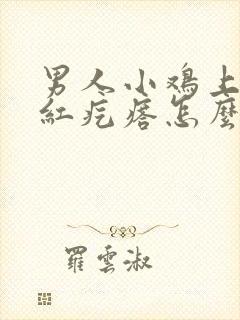 男人小鸡上
紅疙瘩怎麼
羅雲淑